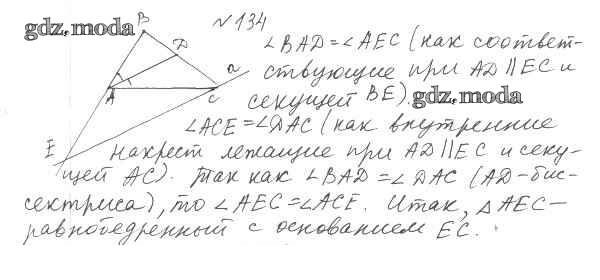 gdz.moda
№ 134
B
D
A
C
a
E
∠BAD=∠AEC (как соответ-
ствующие при AD∥EC и
секущей BE). gdz.moda
∠ACE=∠DAC (как внутренние
накрест лежащие при AD∥EC и секу-
щей AC). Так как ∠BAD=∠DAC (AD-бис-
сектриса), то ∠AEC=∠ACE. Итак, △AEC—
равнобедренный с основанием EC.